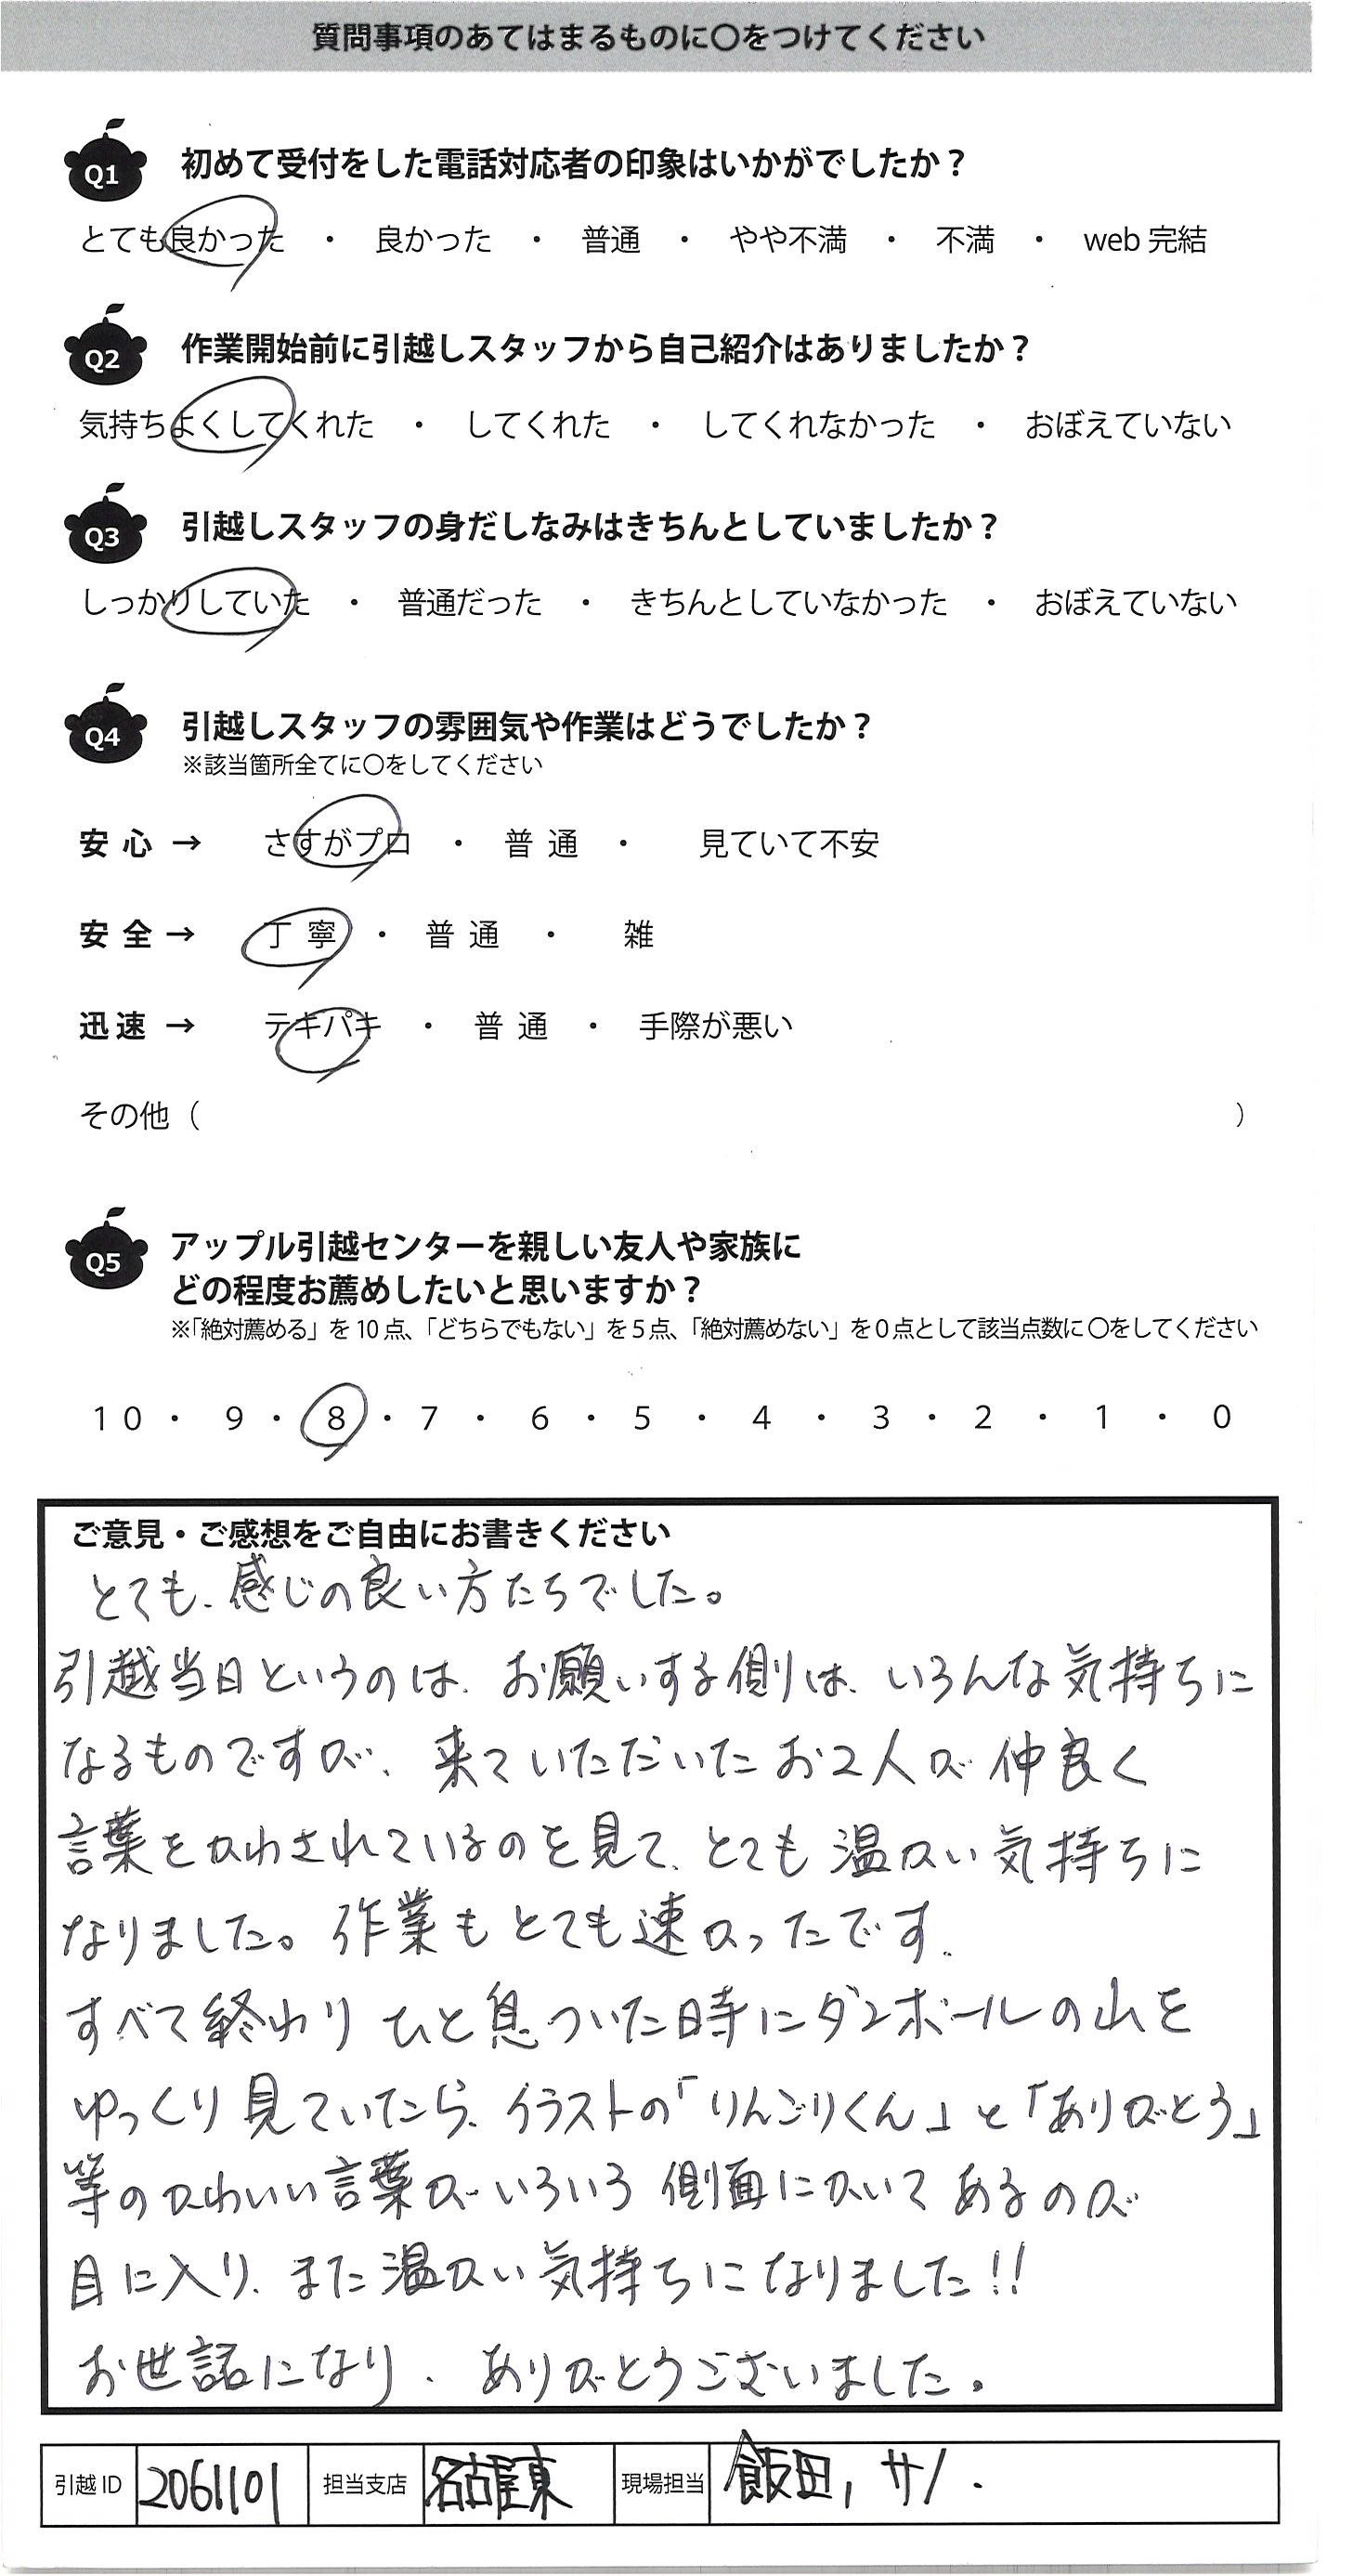 質問事項のあてはまるものに○をつけてください
Q1 初めて受付をした電話対応者の印象はいかがでしたか？
とても良かった ・ 良かった ・ 普通 ・ やや不満 ・ 不満 ・ web 完結
Q2 作業開始前に引越しスタッフから自己紹介はありましたか？
気持ちよくしてくれた ・ してくれた ・ してくれなかった ・ おぼえていない
Q3 引越しスタッフの身だしなみはきちんとしていましたか？
しっかりしていた ・ 普通だった ・ きちんとしていなかった ・ おぼえていない
Q4 引越しスタッフの雰囲気や作業はどうでしたか？
※該当箇所全てに○をしてください
安心 → さすがプロ ・ 普通 ・ 見ていて不安
安全 → 丁寧 ・ 普通 ・ 雑
迅速 → テキパキ ・ 普通 ・ 手際が悪い
その他（ ）
Q5 アップル引越センターを親しい友人や家族に
どの程度お薦めしたいと思いますか？
※「絶対薦める」を10点、「どちらでもない」を5点、「絶対薦めない」を0点として該当点数に○をしてください
10 ・ 9 ・ 8 ・ 7 ・ 6 ・ 5 ・ 4 ・ 3 ・ 2 ・ 1 ・ 0
ご意見・ご感想をご自由にお書きください
とても、感じの良い方たちでした。
引越当日というのは、お願いする側は、いろんな気持ちに
なるものですが、来ていただいたお2人が仲良く
言葉をかわされているのを見て、とても温かい気持ちに
なりました。作業もとても速かったです。
すべて終わりひと息ついた時にダンボールの山を
ゆっくり見ていたら、イラストの「りんごりくん」と「ありがとう」
等のかわいい言葉がいろいろ側面にかいてあるのが
目に入り、また温かい気持ちになりました!!
お世話になり、ありがとうございました。
引越ID 2061101 担当支店 名古屋東 現場担当 飯田, サノ.